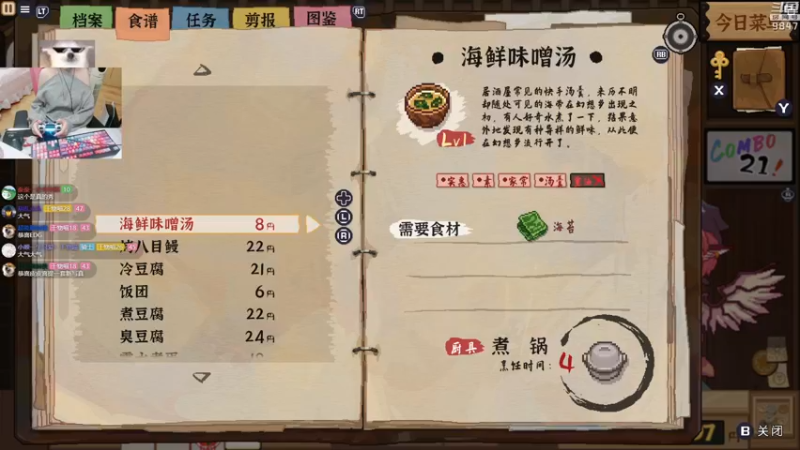 LT
档案
食谱
任务
剪报
图鉴
RT
今日菜
9847
海鲜味噌汤
RB
X
Y
居酒屋常见的快手汤羹，来历不明
却随处可见的海带在幻想乡出现之
初，有人好奇水煮了一下，结果意
外地发现有种等样的鲜味，从此便
在幻想乡流行开了。
Lv1
实惠
素
家常
汤羹
COMBO
21!
海鲜味噌汤 8円
八目鳗 22円
冷豆腐 21円
饭团 6円
煮豆腐 22円
臭豆腐 24円
L
R
需要食材
海苔
厨具
煮锅
烹饪时间：4
这个是真的秀
大气
大气大气
B 关闭